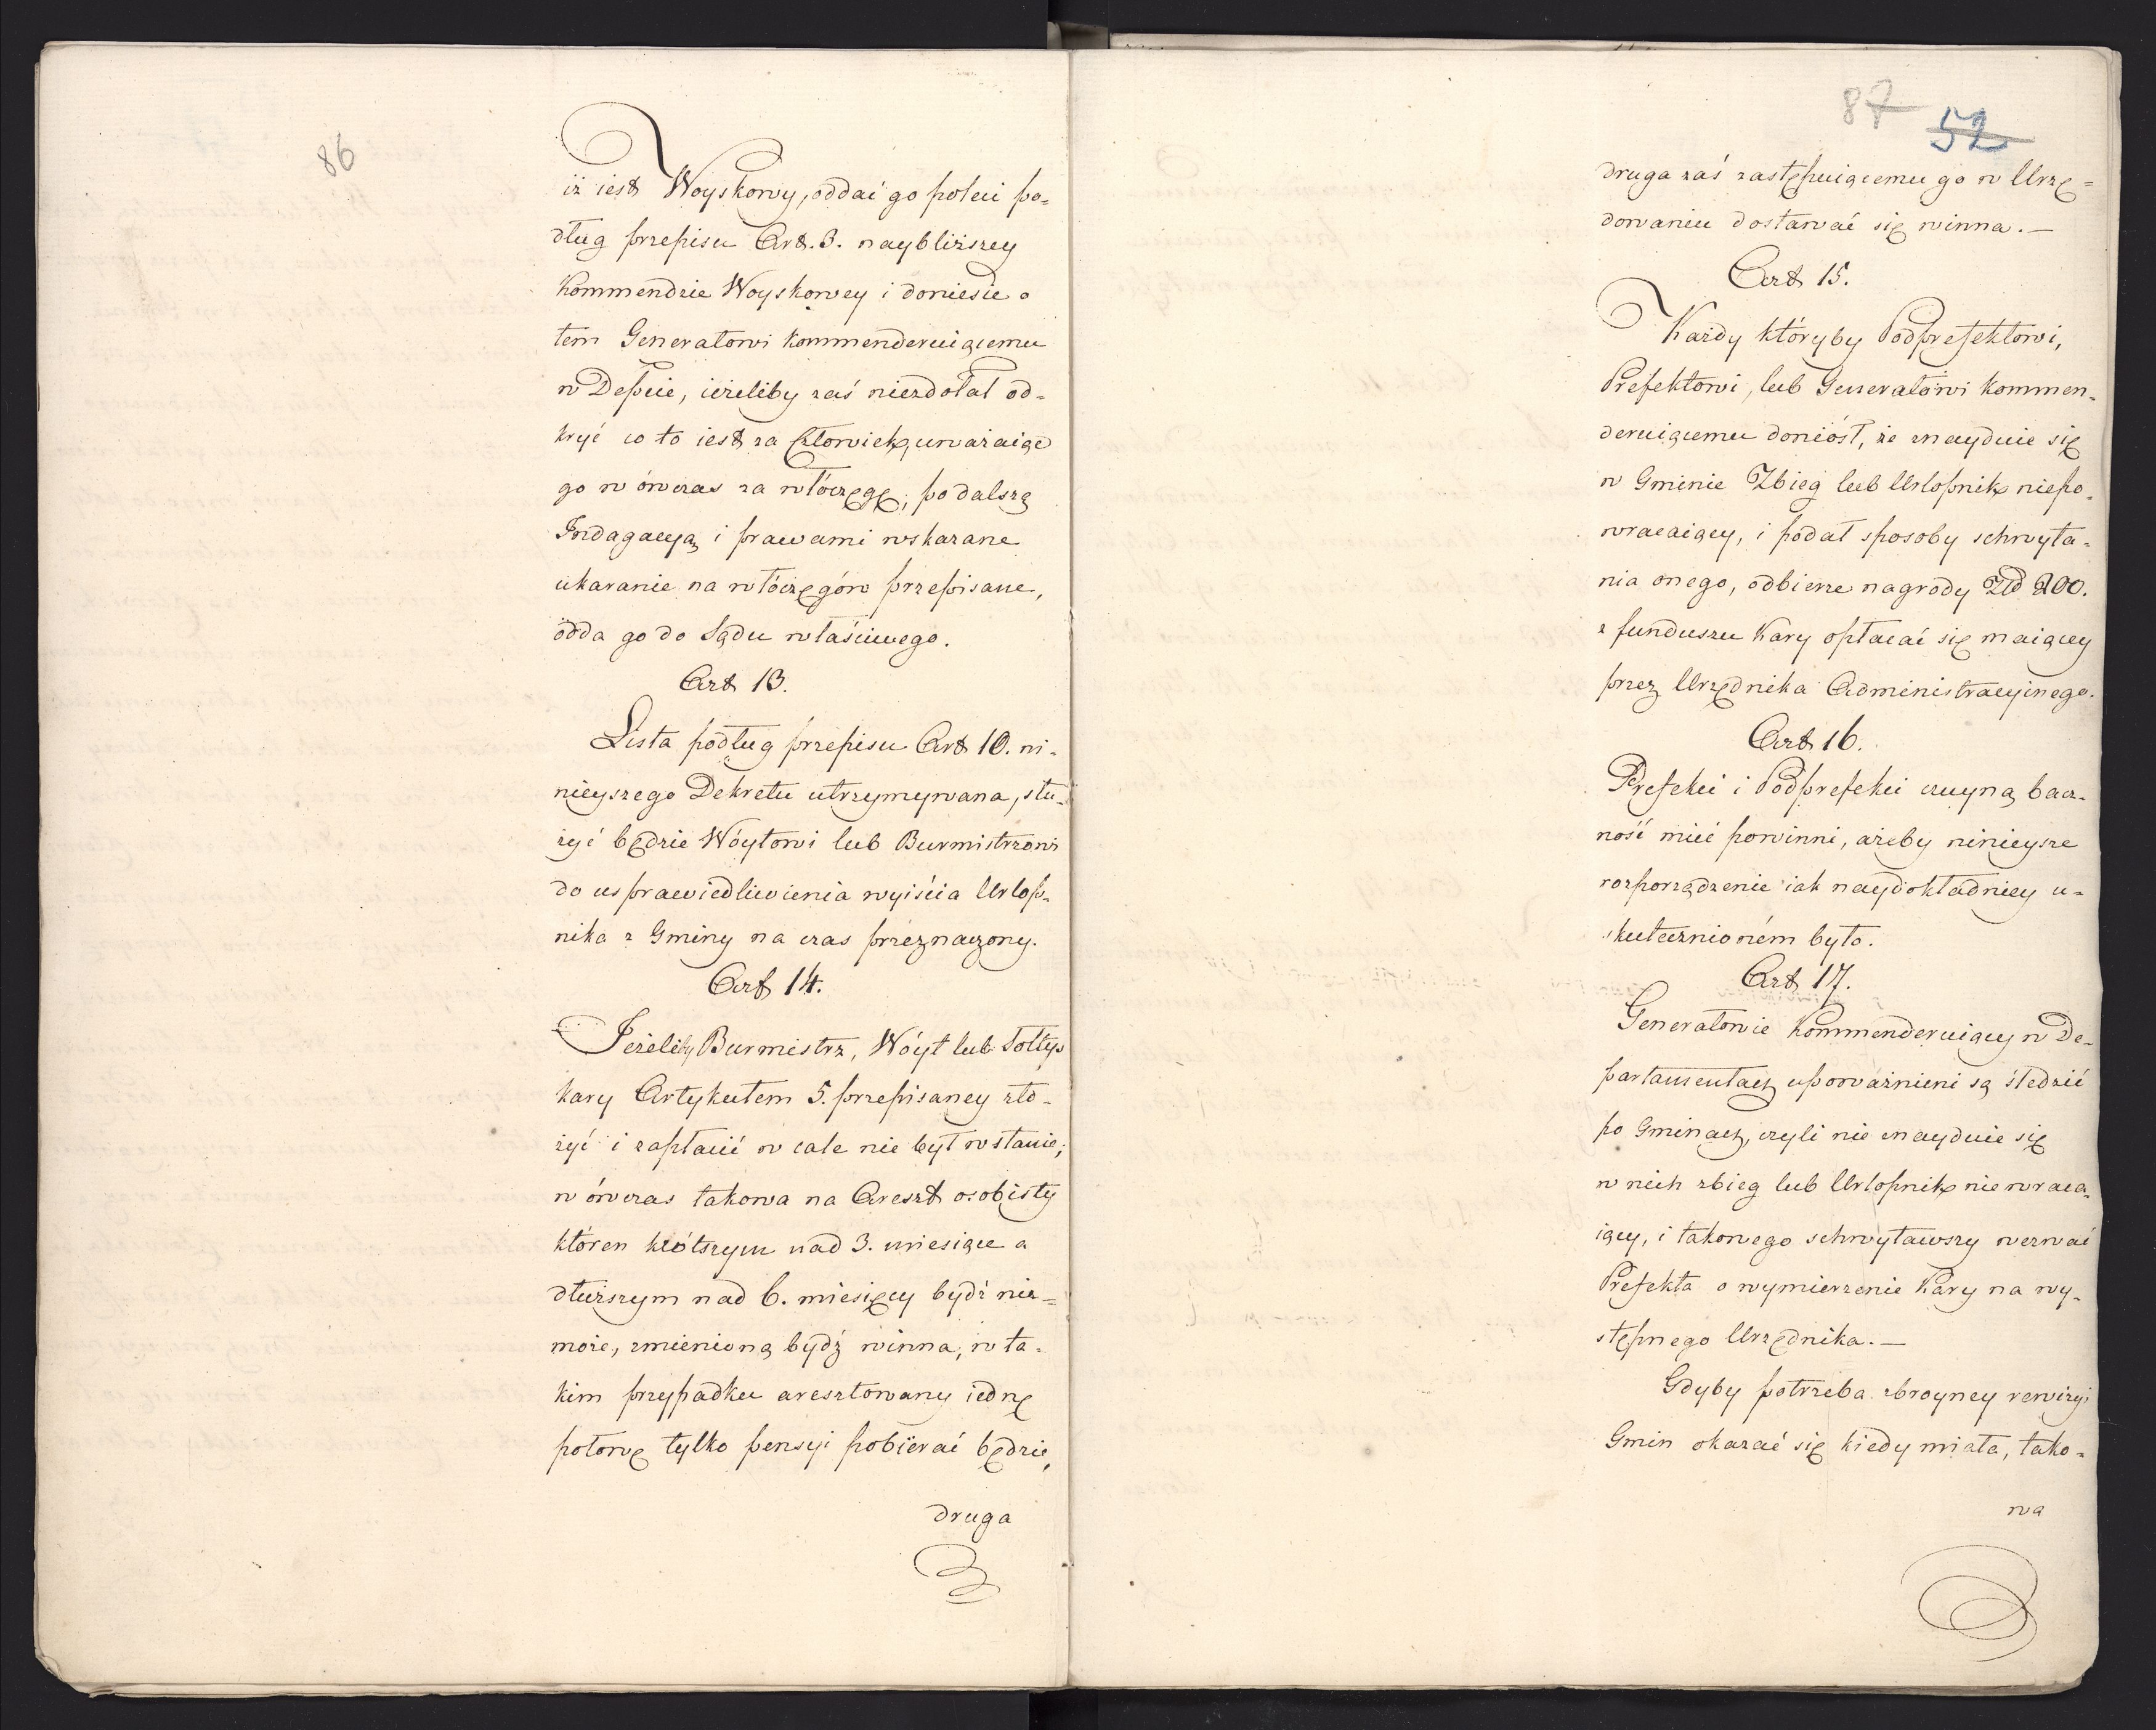 86
iż iest Woyskowy, oddać go poleci po=
dług przepisu Art. 3. naybliższey
Kommendzie Woyskowey i doniesie o
tem Generałowi kommenderuiącemu
w Depcie, ieżeliby zaś niezdołał od=
kryć co to iest za Człowiek, uważaiąc
go w ówczas za włóczęgę, po dalszą
Indagacyą i prawami wskazane
ukaranie na włóczęgów przepisane,
odda go do Sądu właściwego.
Art 13.
Lista podług przepisu Art 10. ni=
nieyszego Dekretu utrzymywana, słu=
żyć będzie Wóytowi lub Burmistrzowi
do usprawiedliwienia wyiścia Urlop=
nika z Gminy na czas przeznaczony.
Art 14.
Jeżeliby Burmistrz, Wóyt lub Sołtys
kary Artykułem 5. przepisaney zło=
żyć i zapłacić w cale nie był wstanie;
w ówczas takowa na Areszt osobisty
któren krótszym nad 3. miesiące a
dłuższym nad 6. miesięcy bydź nie=
może, zmienioną bydź winna, w ta=
kim przypadku aresztowany iednę
połowę tylko pensyi pobierać będzie,
druga
87 52
druga zaś zastępuiącemu go w Urzę=
dowaniu dostawać się winna.—
Art 15.
Każdy któryby Podprefektowi,
Prefektowi, lub Generałowi kommen=
deruiącemu doniósł, że znayduie się
w Gminie Zbieg lub Urlopnik niepo=
wracaiący, i podał sposoby schwyta=
nia onego, odbierze nagrody Złł 200.
z funduszu Kary opłacać się maiącey
przez Urzędnika Administracyinego.
Art 16.
Prefekci i Podprefekci czuyną bacz=
ność mieć powinni, ażeby ninieysze
rozporządzenie iak naydokładniey u=
skutecznioném było.
Art 17.
Generałowie Kommenderuiący w De=
partamentach upoważnieni są śledzić
po Gminach, czyli nie znayduie się
w nich zbieg lub Urlopnik nie wraca=
iący, i takowego schwytawszy wezwać
Prefekta o wymierzenie Kary na wy=
stępnego Urzędnika.—
Gdyby potrzeba zbroyney rewizyi
Gmin okazać się kiedy miała, tako=
wa